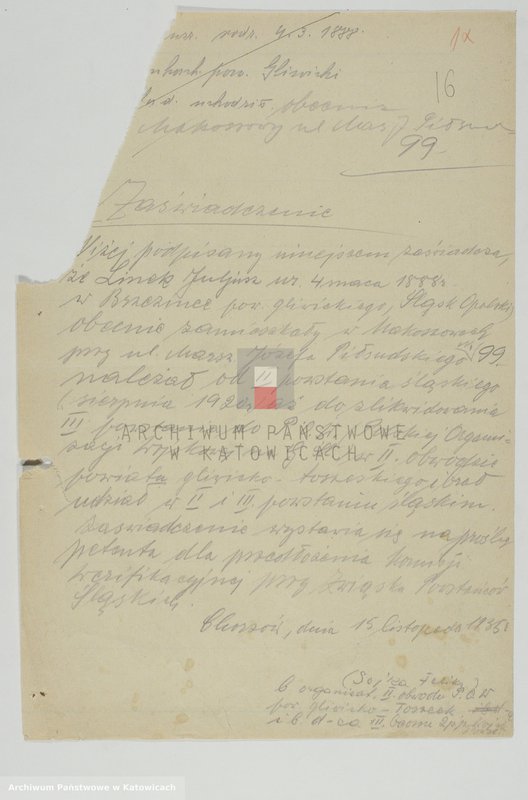 ur. rodz. 4.3.1888.
1x
pow. Gliwicki
16
uchodź. obecnie
Makoszowy ul Mar. J Piłsud
99.
Zaświadczenie
Niżej podpisany niniejszem zaświadcza,
że Linek Juljusz ur. 4 marca 1888r
w Brzezince pow. gliwickiego, Śląsk Opolski,
obecnie zamieszkały w Makoszowach
przy ul. Marsz. Józefa Piłsudskiego nr. 99.
należał od II powstania śląskiego
(sierpnia 1920, aż do zlikwidowania
III powstania do Organi-
zacji w II. obwodzie
powiatu gliwicko-toszeckiego, brał
udział w II i III powstaniu śląskim.
Zaświadczenie wystawia się na prośbę
petenta dla przedłożenia komisji
weryfikacyjnej przy Związku Powstańców
Śląskich.
Chorzów, dnia 15 Listopada 1935r
b. organizat. II. obwodu P.O.W
pow. gliwicko-Toszeck.
i b. d-ca III. baonu
ARCHIWUM PAŃSTWOWE
W KATOWICACH
Archiwum Państwowe w Katowicach